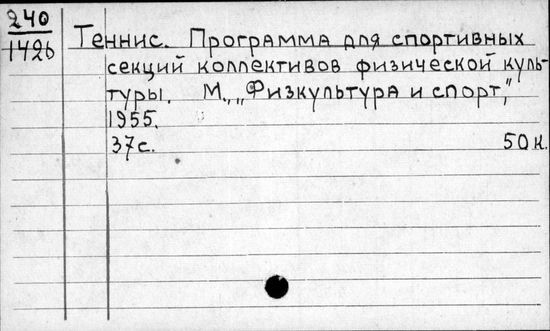 240
1426
Теннис. Программа для спортивных
секций коллективов физической куль-
туры. М., „Физкультура и спорт",
1955.
37с. 50к.